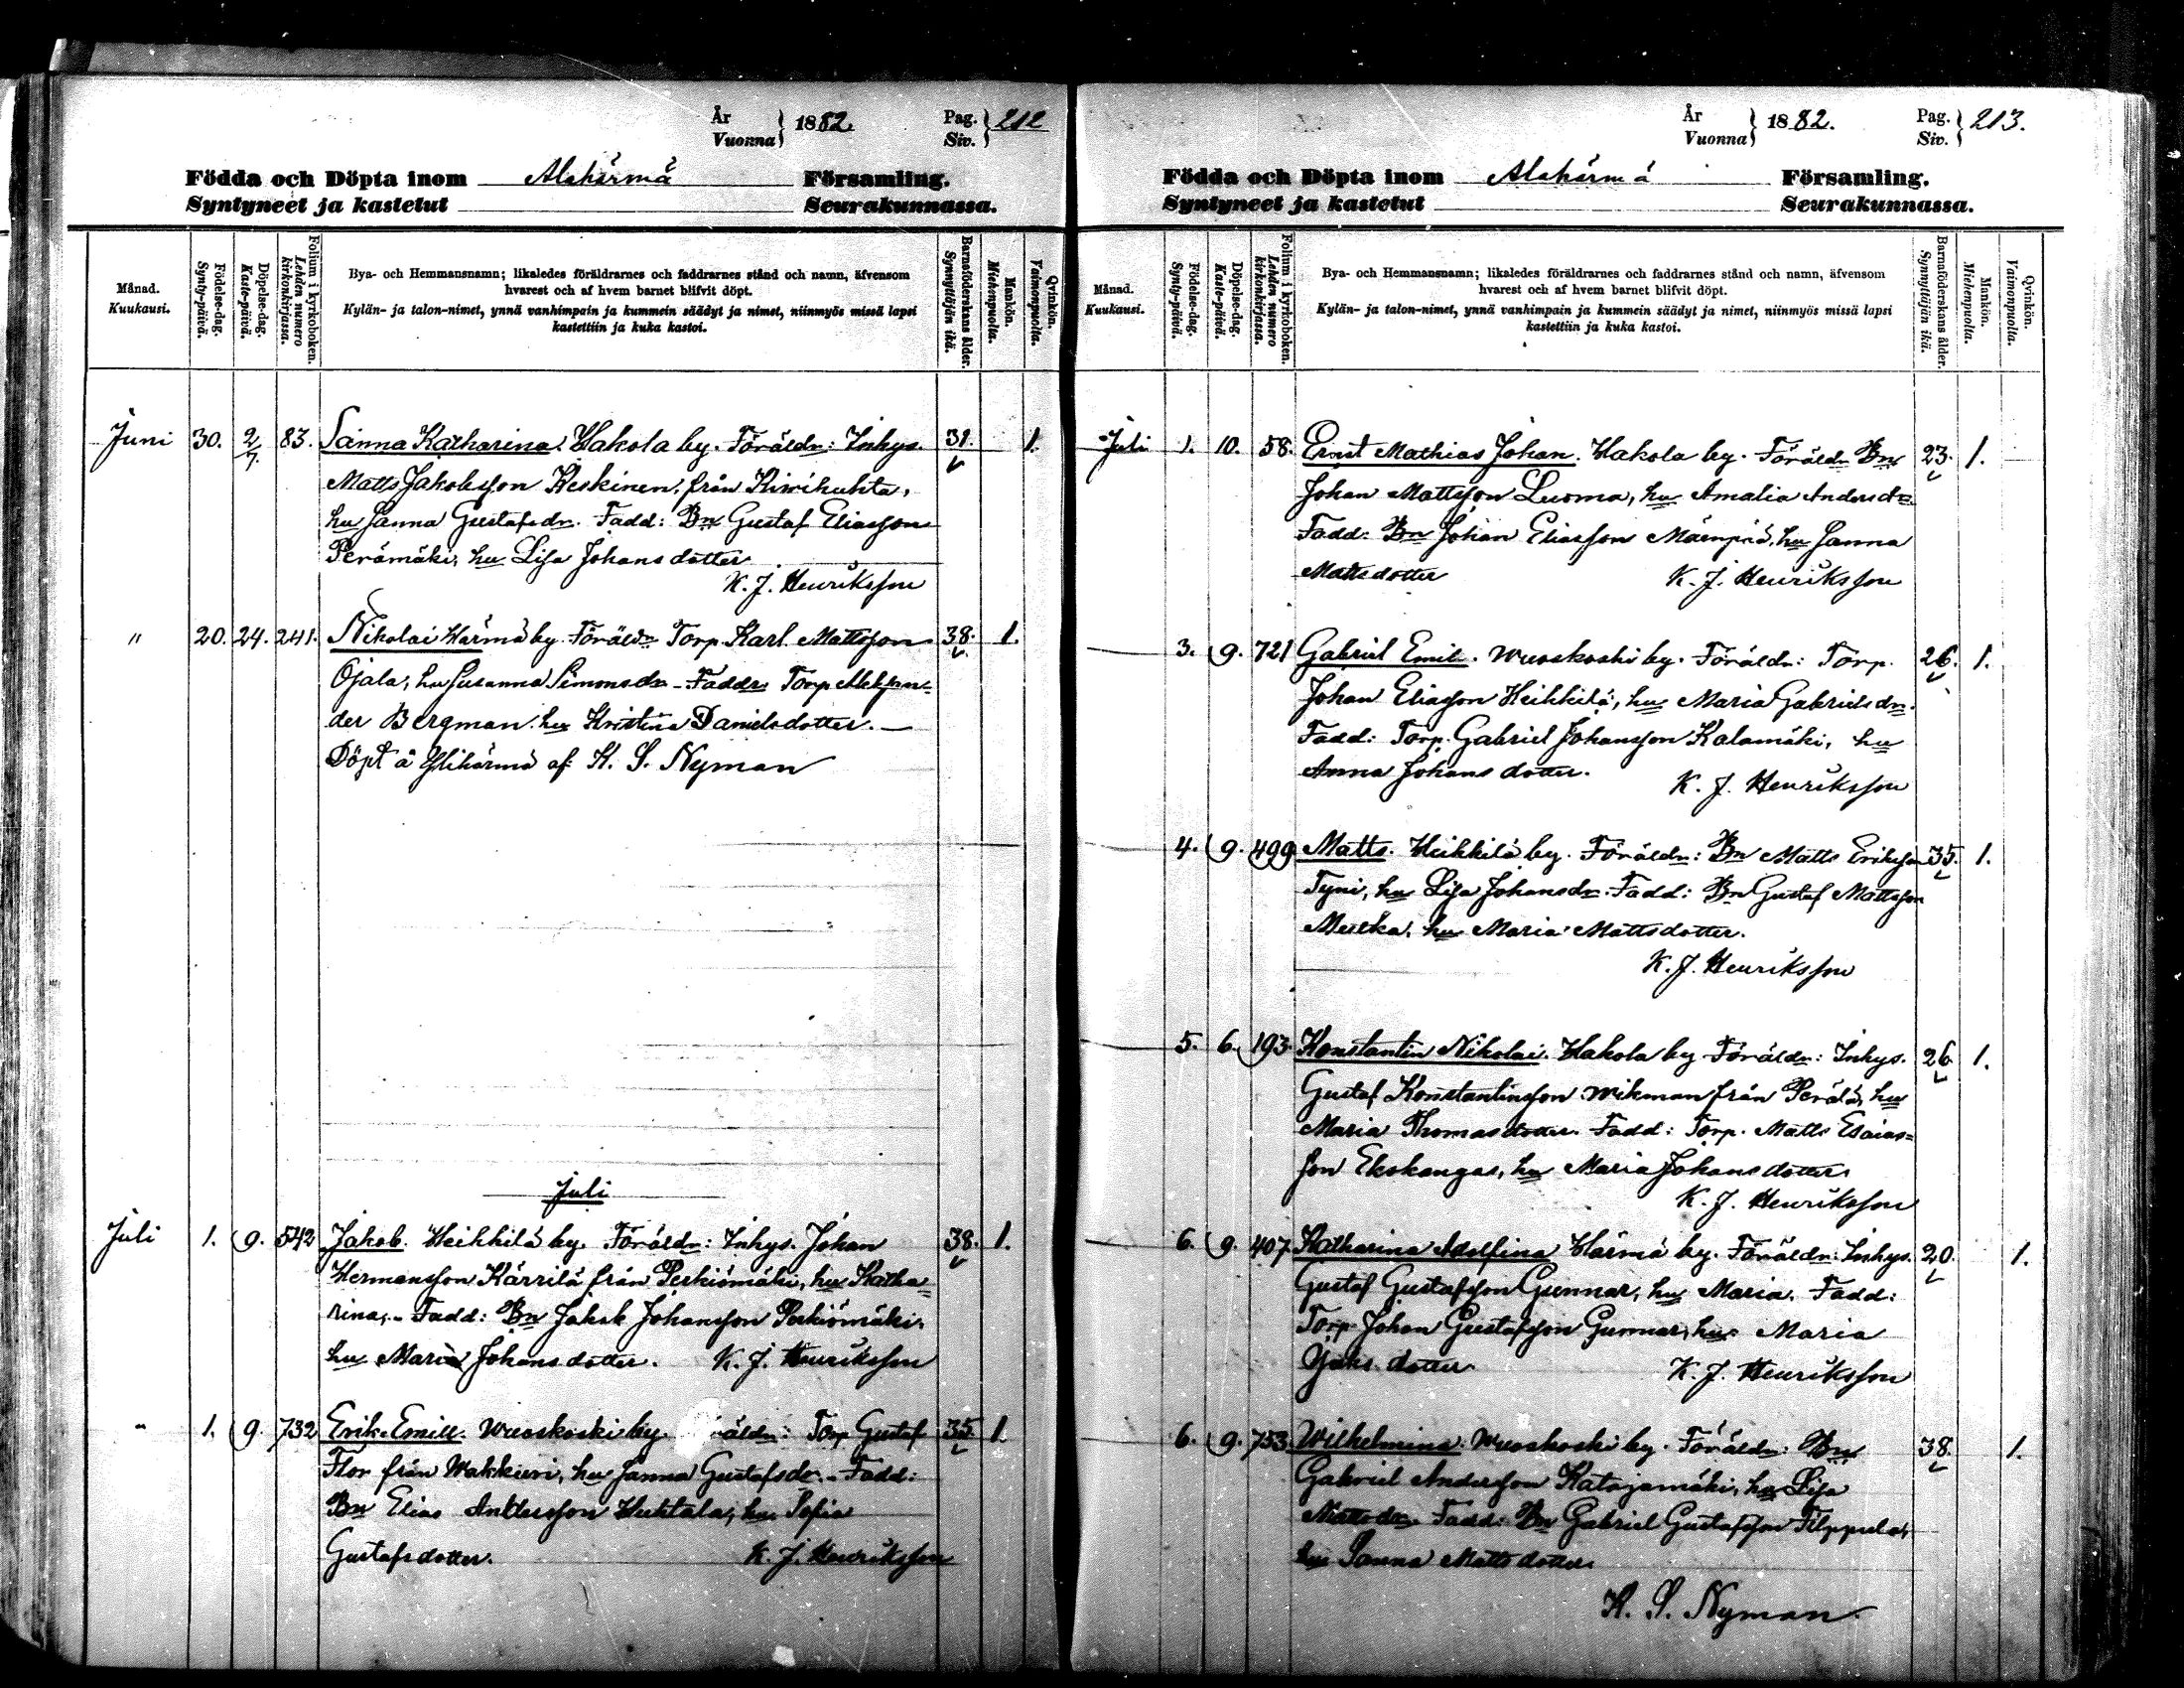 År
Vuonna } 1882. Pag.
Siv. } 212
Födda och Döpta inom Alahärmä Församling.
Syntyneet ja kastetut Seurakunnassa.
Månad.
Kuukausi.
Födelse-dag.
Synty-päivä.
Döpelse-dag.
Kaste-päivä.
Folium i kyrkoboken.
Lehden numero
kirkonkirjassa.
Bya- och Hemmansnamn; likaledes föräldrarnes och faddrarnes stånd och namn, äfvensom
hvarest och af hvem barnet blifvit döpt.
Kylän- ja talon-nimet, ynnä vanhimpain ja kummein säädyt ja nimet, niinmyös missä lapsi
kastettiin ja kuka kastoi.
Barnaföderskans ålder.
Synnyttäjän ikä.
Mankön.
Miehenpuolta.
Qvinkön.
Vaimonpuolta.
Juni 30. 2/7. 83. Sanna Katharina. Hakola by. Föräldr: Inhys. 31. 1.
Matts Jakobsson Keskinen, från Kiwihuhta,
hu Sanna Gustafsdr. Fadd: Bn Gustaf Eliasson
Perämäki, hu Lisa Johansdotter
K. J. Henriksson
" 20. 24. 241. Nikolai Härmä by. Föräldr Torp. Karl Mattsson 38. 1.
Ojala, hu Susanna Simonsdr - Faddr Torp Alexan=
der Bergman hu Kristina Danielsdotter. —
Döpt å Ylihärmä af K. S. Nyman
Juli
Juli 1. 9. 542 Jakob. Heikkilä by. Föräldr: Inhys. Johan 38. 1.
Hermansson Kärrilä från Perkiömäki, hu Katha=
rina, - Fadd: Bn Jakob Johansson Perkiömäki,
hu Maria Johansdotter. K. J. Henriksson
" 1. 9. 732 Erik Emill. Wuoskoski by. äldr: Torp Gustaf 35. 1.
Flor från Wakkuri, hu Sanna Gustafsdr. - Fadd:
Bn Elias Andersson Huhtala, hu Sofia
Gustafsdotter. K. J. Henriksson
År
Vuonna } 1882. Pag.
Siv. } 213.
Födda och Döpta inom Alahärmä Församling.
Syntyneet ja kastetut Seurakunnassa.
Månad.
Kuukausi.
Födelse-dag.
Synty-päivä.
Döpelse-dag.
Kaste-päivä.
Folium i kyrkoboken.
Lehden numero
kirkonkirjassa.
Bya- och Hemmansnamn; likaledes föräldrarnes och faddrarnes stånd och namn, äfvensom
hvarest och af hvem barnet blifvit döpt.
Kylän- ja talon-nimet, ynnä vanhimpain ja kummein säädyt ja nimet, niinmyös missä lapsi
kastettiin ja kuka kastoi.
Barnaföderskans ålder.
Synnyttäjän ikä.
Mankön.
Miehenpuolta.
Qvinkön.
Vaimonpuolta.
Juli 1. 10. 58. Ernst Mathias Johan. Hakola by. Föräldr Bn 23. 1.
Johan Mattsson Luoma, hu Amalia Andersdr.
Fadd: Bn Johan Eliasson Mäenpää, hu Sanna
Mattsdotter K. J. Henriksson
3. 9. 721 Gabriel Emil. Wuoskoski by. Föräldr: Torp. 26. 1.
Johan Eliasson Heikkilä, hu Maria Gabrielsdr.
Fadd: Torp. Gabriel Johansson Kalamäki, hu
Anna Johansdotter. K. J. Henriksson
4. 9. 499 Matts. Heikkilä by. Föräldr: Bn Matts Eriksson 35. 1.
Tyni, hu Lisa Johansdr. Fadd: Bn Gustaf Mattsson
hu Maria Mattsdotter.
K. J. Henriksson
5. 6. 193. Konstantin Nikolai. Hakola by Föräldr: Inhys. 26 1.
Gustaf Konstantinsson Wikman från Perälä, hu
Maria Thomasdotter. Fadd: Torp. Matts Esaias=
son Ekokangas, hu Maria Johansdotter.
K. J. Henriksson
6. 9. 407. Katharina Adolfina Härmä by. Föräldr: Inhys. 20. 1.
Gustaf Gustafsson Gunnar, hu Maria. Fadd:
Torp. Johan Gustafsson Gunnar, hu Maria
dotter. K. J. Henriksson
6. 9. 753 Wilhelmina. Wuoskoski by. Föräldr: Bn 38. 1.
Gabriel Andersson Katajamäki, hu Lisa
Mattsdr. Fadd: Bn Gabriel Gustafsson Filppula,
hu Sanna Mattsdotter.
K. S. Nyman.